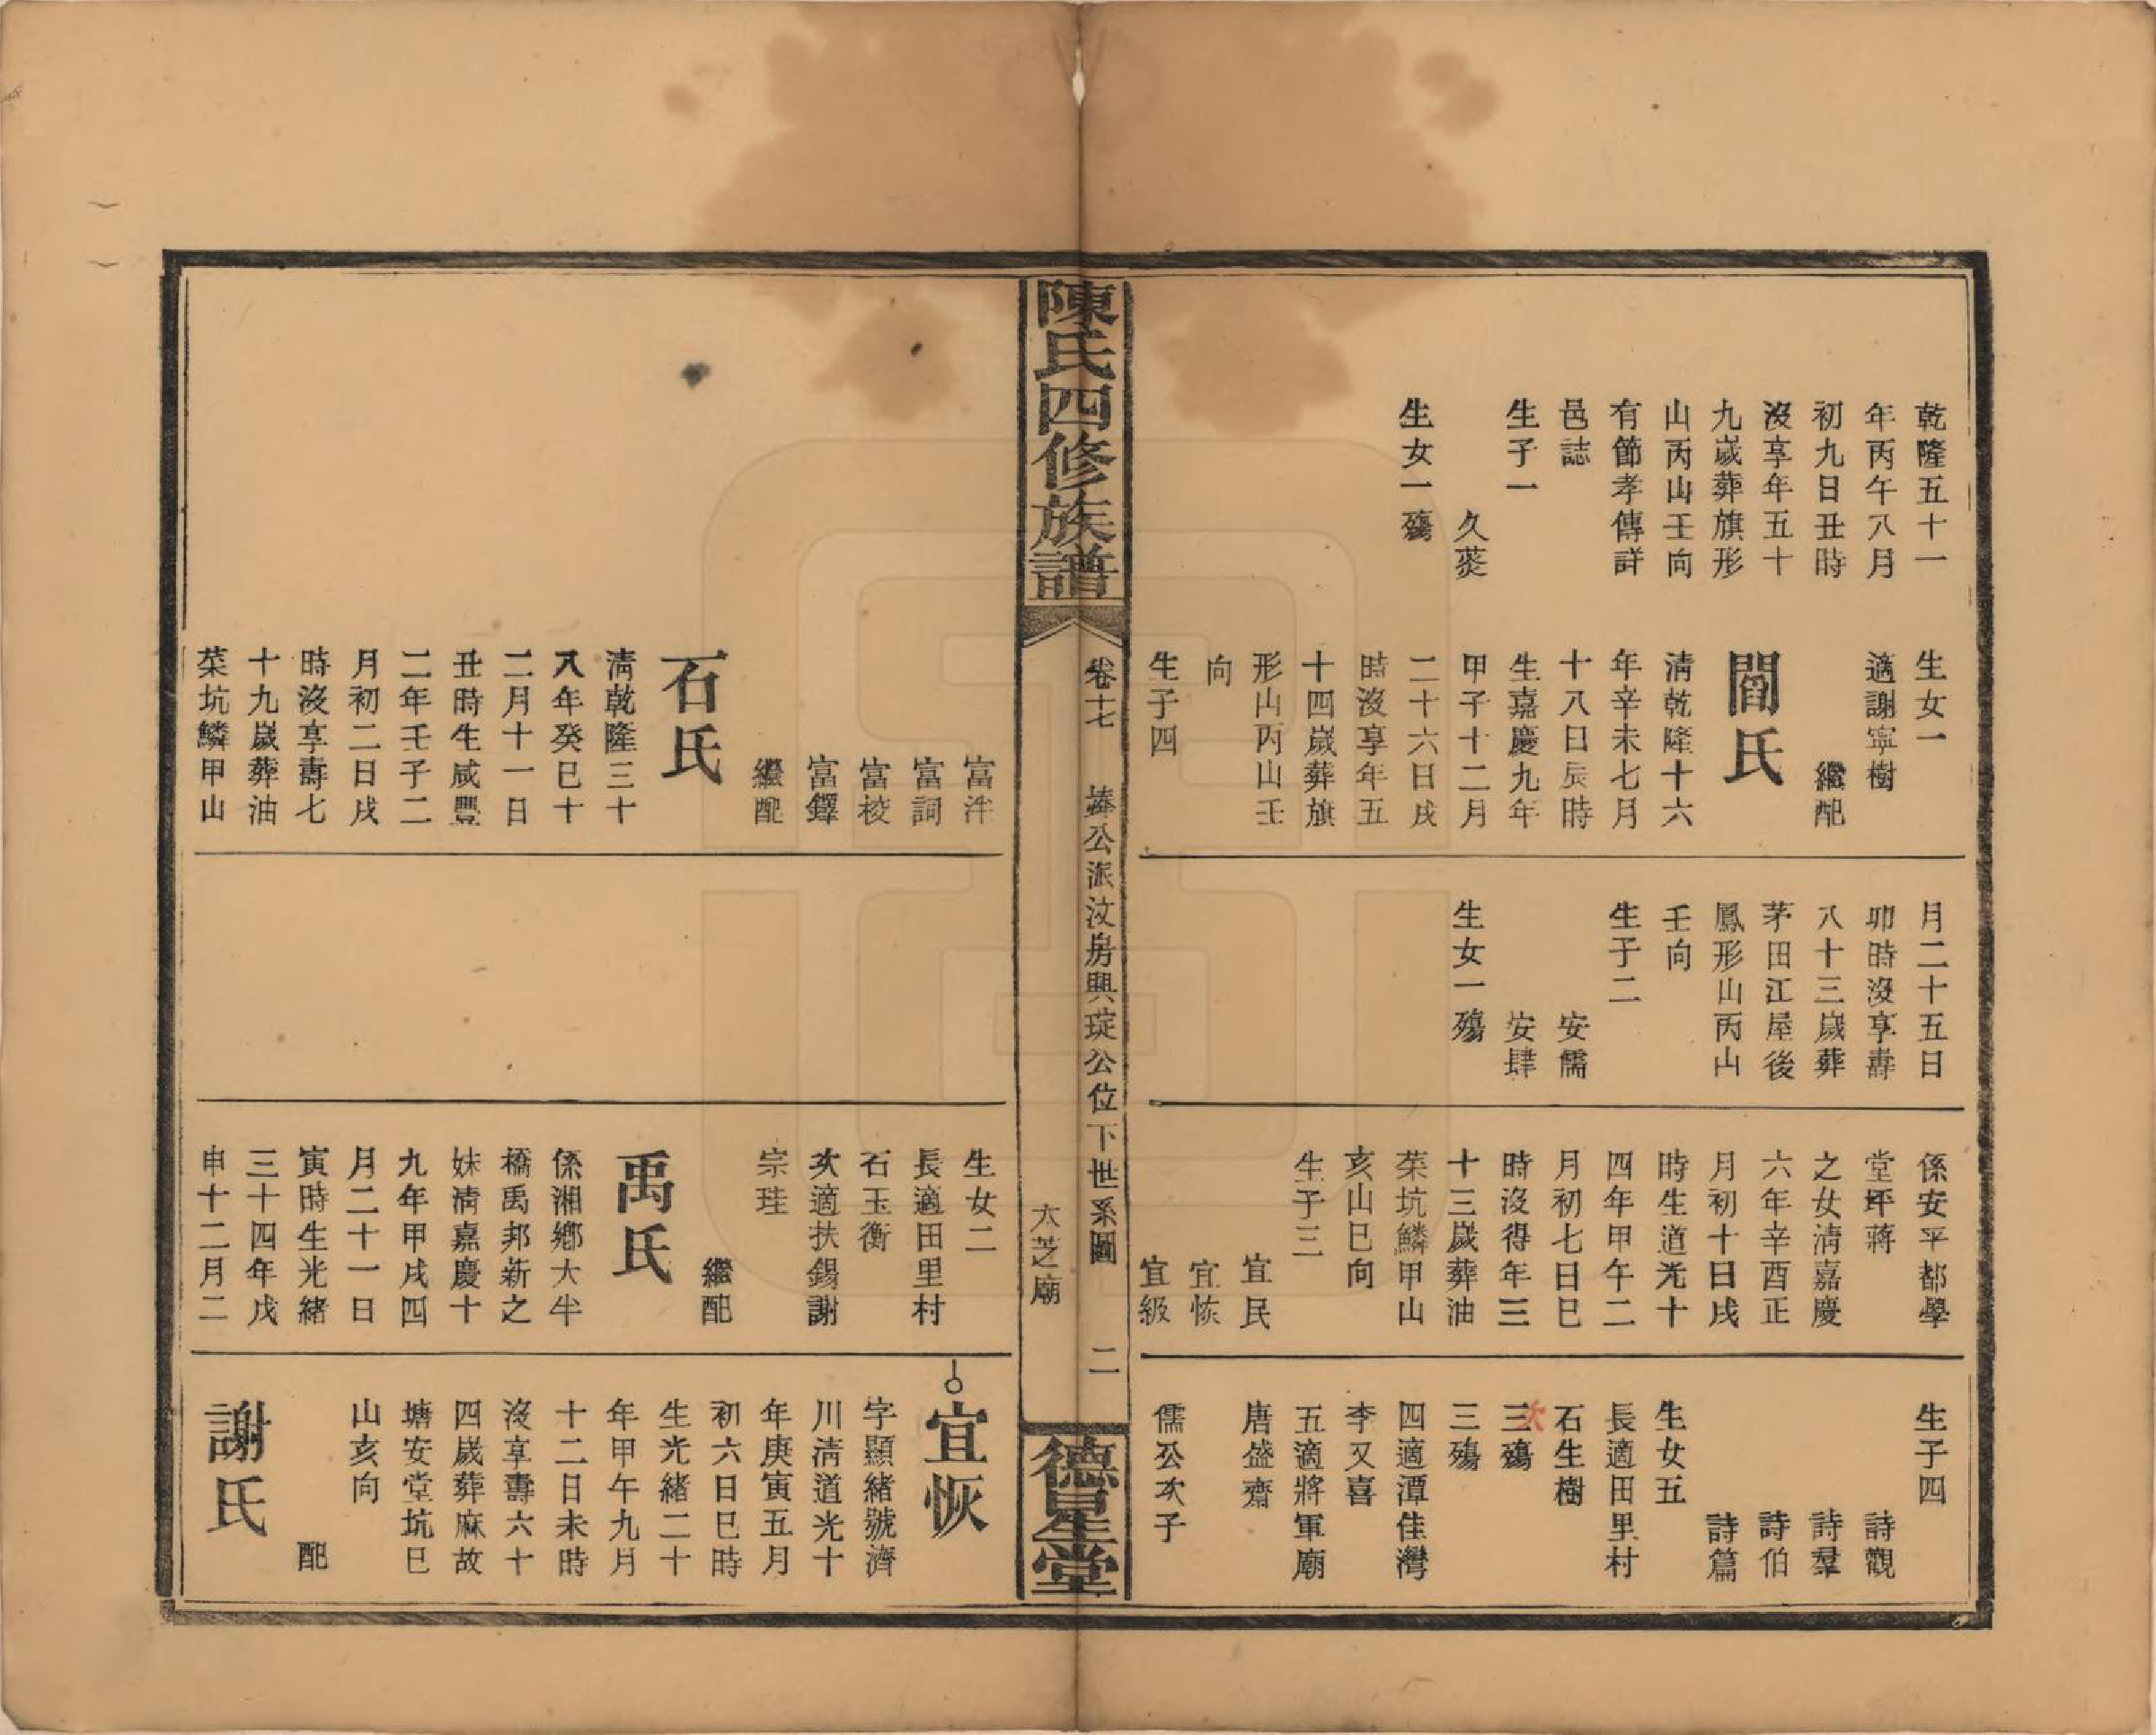 乾隆五十一
年丙午八月
初九日丑時
沒享年五十
九歲葬旗形
山丙山壬向
有節孝傳詳
邑誌
生子一
久葵
生女一殤
生女一
適謝寧樹
繼配
閻氏
清乾隆十六
年辛未七月
十八日辰時
生嘉慶九年
甲子十二月
二十六日戌
時沒享年五
十四歲葬旗
形山丙山壬
向
生子四
月二十五日
卯時沒享壽
八十三歲葬
茅田江屋後
鳳形山丙山
壬向
生子二
安儒
安肆
生女一殤
係安平都學
堂坪蔣
之女清嘉慶
六年辛酉正
月初十日戌
時生道光十
四年甲午二
月初七日巳
時沒得年三
十三歲葬油
菜坑鱗甲山
亥山巳向
生子三
宜民
宜恢
宜級
生子四
詩觀
詩羣
詩伯
詩篇
生女五
長適田里村
石生樹
次三殤
三殤
四適潭佳灣
李又喜
五適將軍廟
唐盛齋
儒公次子
陳氏四修族譜
卷十七
捧公派汶房興琔公位下世系圖
二
大芝廟
德星堂
富泮
富詞
富梭
富鐸
繼配
石氏
清乾隆三十
八年癸巳十
二月十一日
丑時生咸豐
二年壬子二
月初二日戌
時沒享壽七
十九歲葬油
菜坑鱗甲山
生女二
長適田里村
石玉衡
次適扶錫謝
宗珪
繼配
禹氏
係湘鄉大坐
橋禹邦新之
妹清嘉慶十
九年甲戌四
月二十一日
寅時生光緒
三十四年戊
申十二月二
宜恢
字顯緒號濟
川清道光十
年庚寅五月
初六日巳時
生光緒二十
年甲午九月
十二日未時
沒享壽六十
四歲葬麻故
塘安堂坑巳
山亥向
配
謝氏